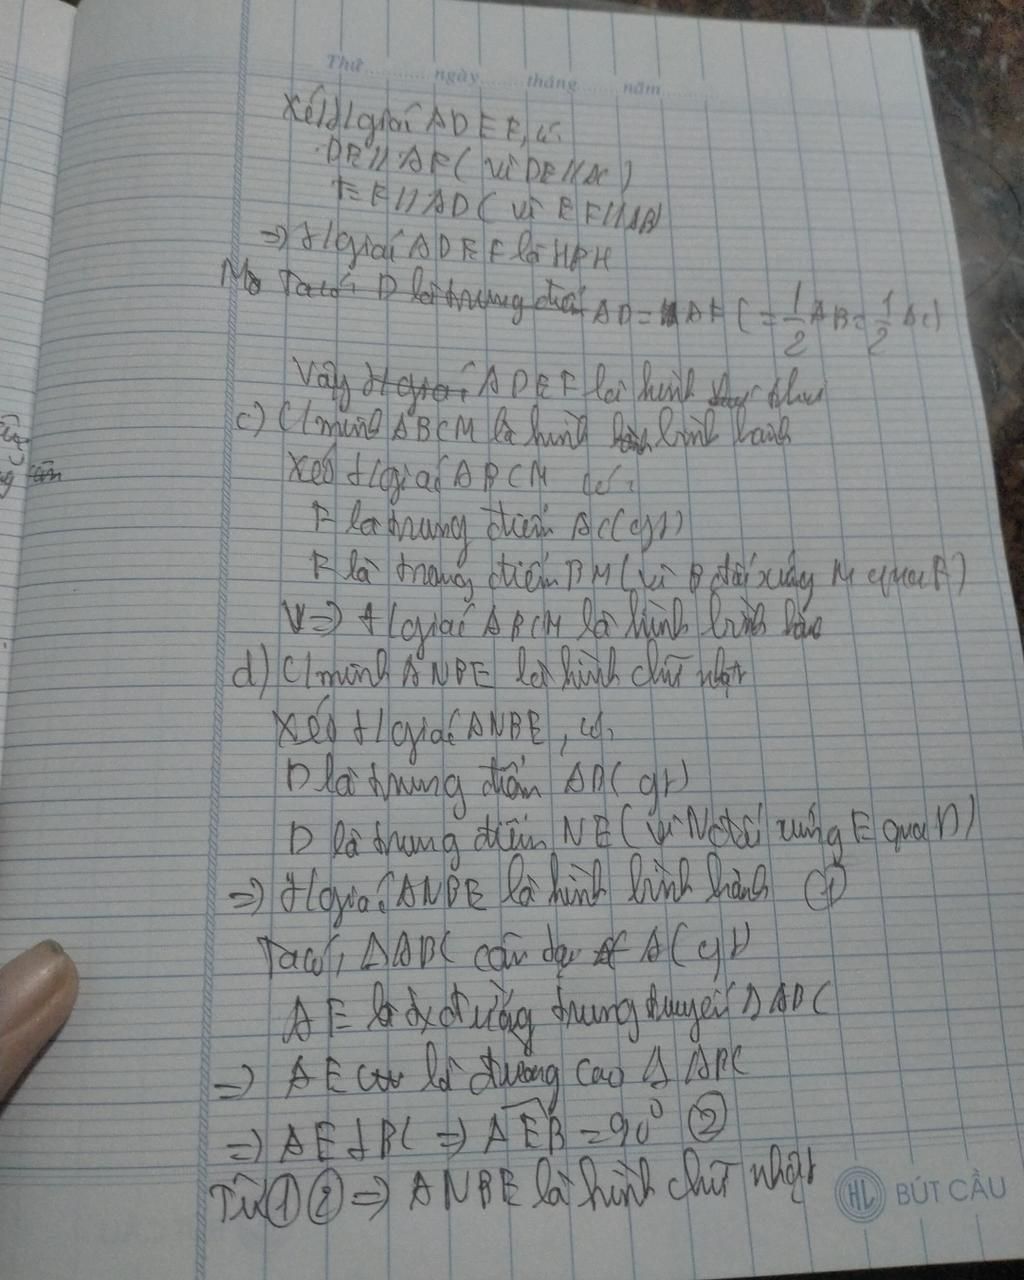 Thứ ngày tháng năm
Xét t/giác ADEF, có:
DE // AF ( vì DE // AC )
EF // AD ( vì EF // AB
=> t/giác ADEF là HBH
Mà Ta có: D là trung điểm AD = AF ( = 1/2 AB = 1/2 AC )
Vậy t/giác ADEF là hình thoi
c) C/minh ABCM là hình bình hành
Xét t/giác ABCM có:
F là trung điểm AC ( gt )
F là trung điểm BM ( vì B đối xứng M qua F )
=> t/giác ABCM là hình bình hành
d) C/minh ANBE là hình chữ nhật
Xét t/giác ANBE, có:
D là trung điểm AB ( gt )
D là trung điểm NE ( vì N đối xứng E qua D )
=> t/giác ANBE là hình bình hành ①
Ta có: Δ ABC cân tại A ( gt )
AE là đường trung tuyến Δ ABC
=> AE là đường cao Δ ABC
=> AE ⊥ BC => AEB = 90⁰ ②
Từ ① ② => ANBE là hình chữ nhật
HL BÚT CẦU